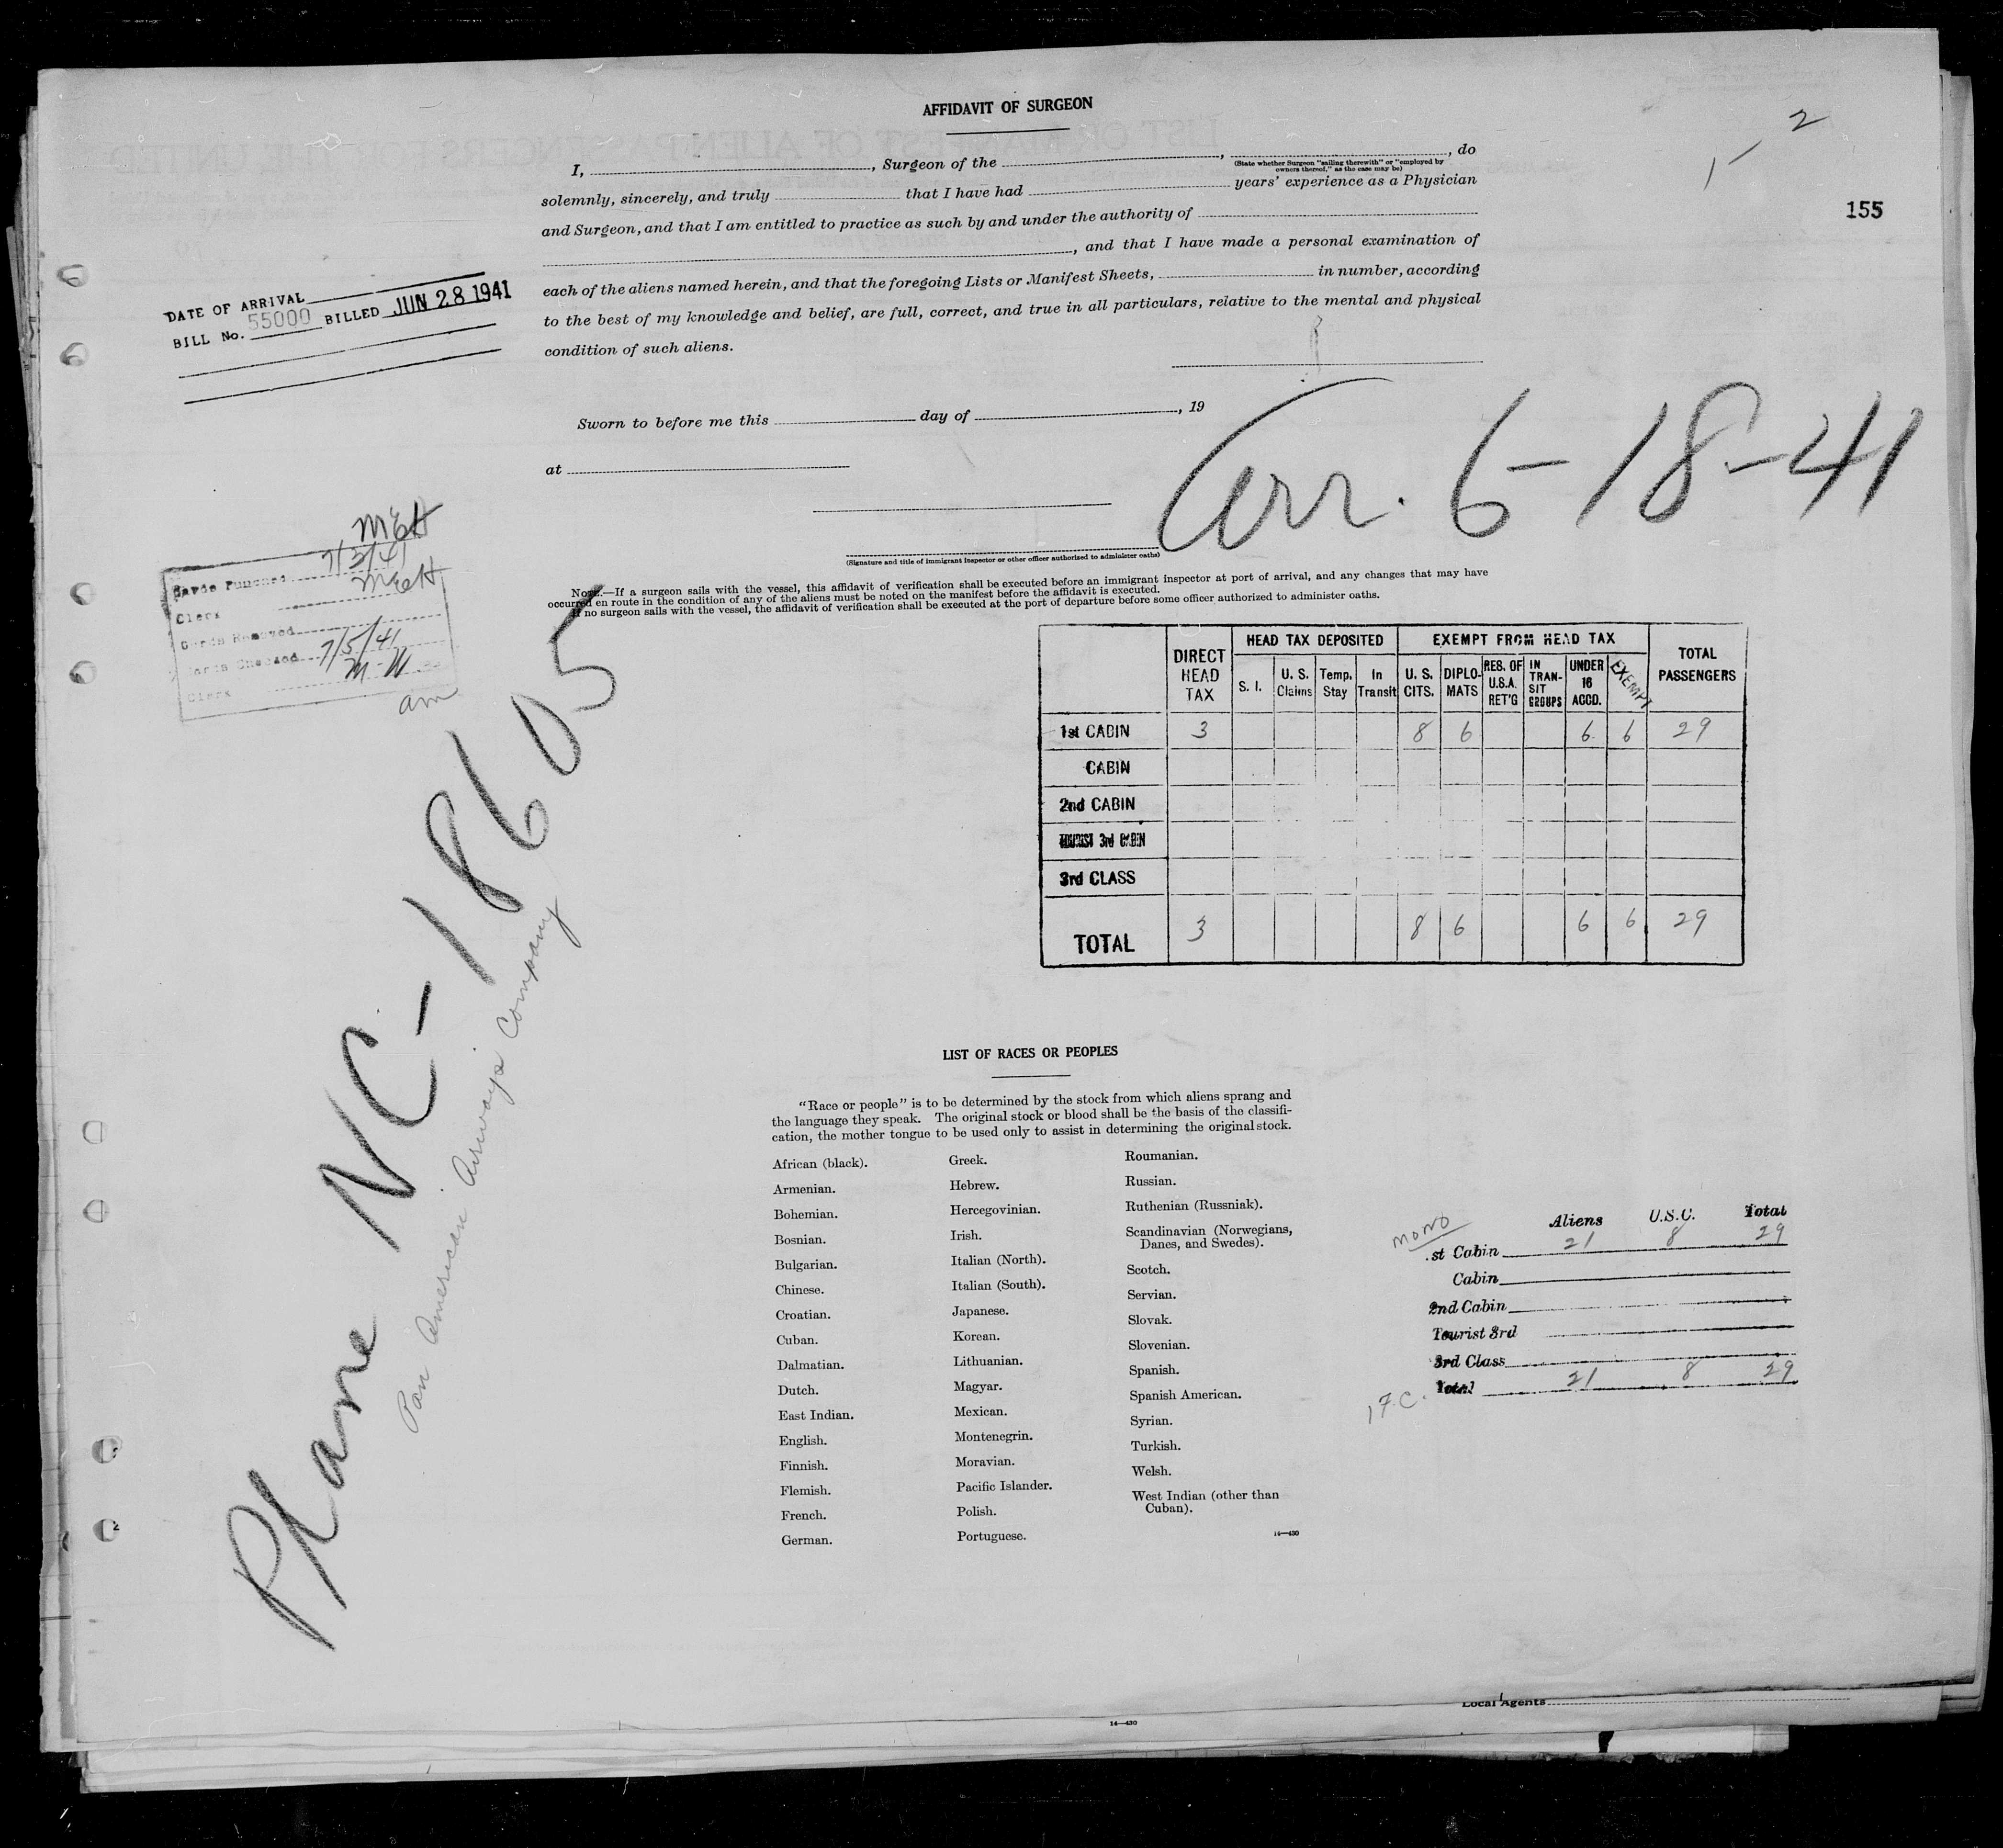 AFFIDAVIT OF SURGEON
2
1
155
I, , Surgeon of the , , do
(State whether Surgeon "sailing therewith" or "employed by owners thereof," as the case may be)
solemnly, sincerely, and truly that I have had years' experience as a Physician
and Surgeon, and that I am entitled to practice as such by and under the authority of
, and that I have made a personal examination of
each of the aliens named herein, and that the foregoing Lists or Manifest Sheets, in number, according
to the best of my knowledge and belief, are full, correct, and true in all particulars, relative to the mental and physical
condition of such aliens.
DATE OF ARRIVAL
BILL No. 55000 BILLED JUN 28 1941
Sworn to before me this day of , 19
at
Arr. 6-18-41
(Signature and title of immigrant inspector or other officer authorized to administer oaths)
NOTE.—If a surgeon sails with the vessel, this affidavit of verification shall be executed before an immigrant inspector at port of arrival, and any changes that may have
occurred en route in the condition of any of the aliens must be noted on the manifest before the affidavit is executed.
If no surgeon sails with the vessel, the affidavit of verification shall be executed at the port of departure before some officer authorized to administer oaths.
MEH
Cards Punched 7/3/41
Clerk MEH
Cards Removed
Cards Checked 7/5/41
Clerk M-W
am
Plane NC-18605
Pan American Airways Company
DIRECT HEAD TAX
HEAD TAX DEPOSITED
EXEMPT FROM HEAD TAX
TOTAL PASSENGERS
S. I. U. S. Claims Temp. Stay In Transit U. S. CITS. DIPLO-MATS RES. OF U.S.A. RET'G IN TRAN-SIT GROUPS UNDER 16 ACCD. EXEMPT
1st CABIN 3 8 6 6 6 29
CABIN
2nd CABIN
TOURIST 3rd CABIN
3rd CLASS
TOTAL 3 8 6 6 6 29
LIST OF RACES OR PEOPLES
"Race or people" is to be determined by the stock from which aliens sprang and
the language they speak. The original stock or blood shall be the basis of the classifi-
cation, the mother tongue to be used only to assist in determining the original stock.
African (black).
Armenian.
Bohemian.
Bosnian.
Bulgarian.
Chinese.
Croatian.
Cuban.
Dalmatian.
Dutch.
East Indian.
English.
Finnish.
Flemish.
French.
German.
Greek.
Hebrew.
Hercegovinian.
Irish.
Italian (North).
Italian (South).
Japanese.
Korean.
Lithuanian.
Magyar.
Mexican.
Montenegrin.
Moravian.
Pacific Islander.
Polish.
Portuguese.
Roumanian.
Russian.
Ruthenian (Russniak).
Scandinavian (Norwegians,
Danes, and Swedes).
Scotch.
Servian.
Slovak.
Slovenian.
Spanish.
Spanish American.
Syrian.
Turkish.
Welsh.
West Indian (other than
Cuban).
14—430
mono
Aliens U.S.C. Total
st Cabin 21 8 29
Cabin
2nd Cabin
Tourist 3rd
3rd Class
Total 21 8 29
17.C.
Local Agents
14—430